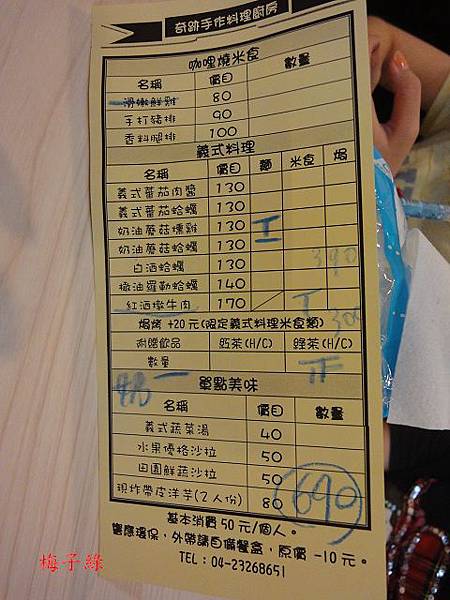 奇跡手作料理廚房
咖哩燒米食
名稱 價目 數量
滑嫩鮮雞 80
手打豬排 90
香料腿排 100
義式料理
名稱 價目 麵 米食 焗
義式蕃茄肉醬 130
義式蕃茄蛤蠣 130
奶油蘑菇燻雞 130
奶油蘑菇蛤蠣 130
白酒蛤蠣 130 390
橄油羅勒蛤蠣 140
紅酒燉牛肉 170
300
焗烤 +20元(限定義式料理米食類)
附贈飲品 紅茶(H/C) 綠茶(H/C)
數量
單點美味
名稱 價目 數量
義式蔬菜湯 40
水果優格沙拉 50
田園鮮蔬沙拉 50
現炸帶皮洋芋(2人份) 80
690
基本消費50元/個人。
響應環保，外帶請自備餐盒，原價 -10元。
TEL：04-23268651
梅子綠